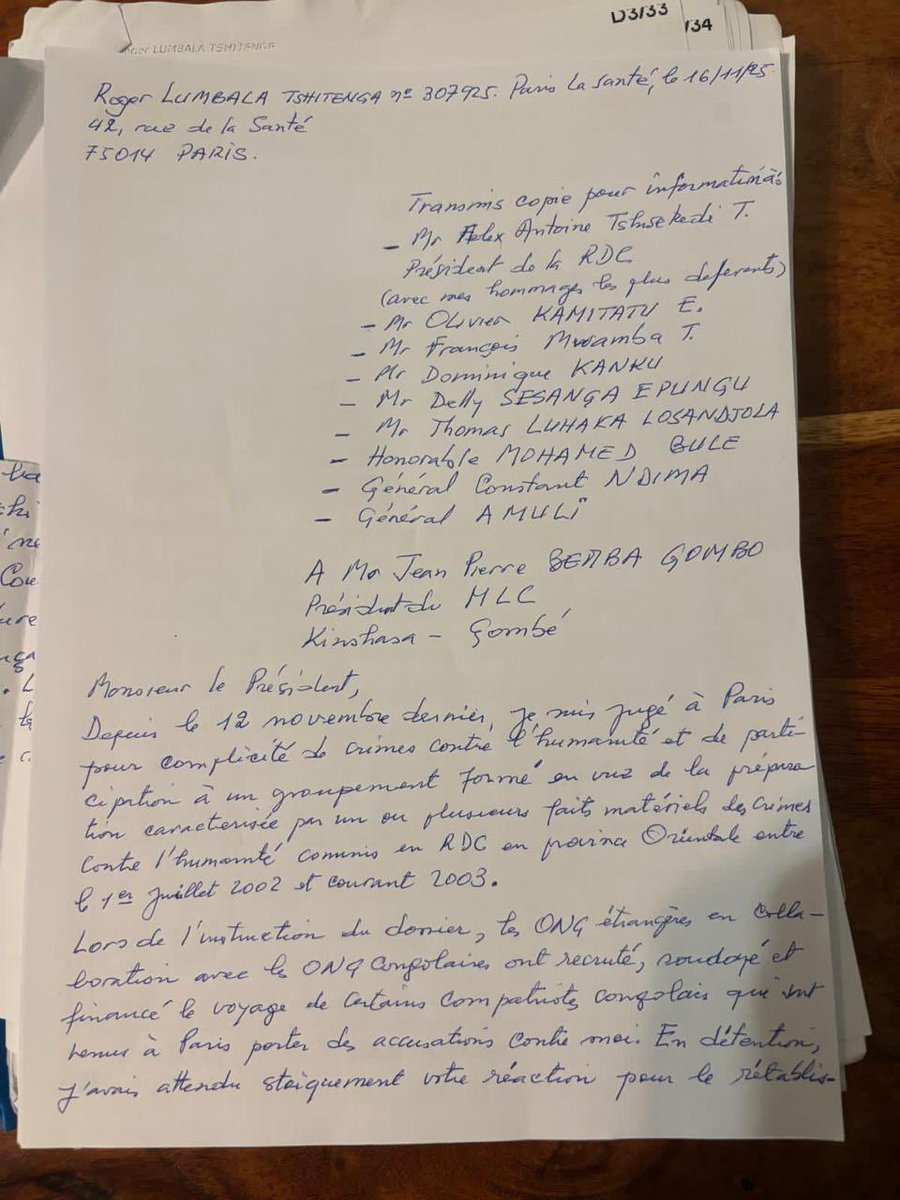 D3/33
/34
LUMBALA TSHITENGE
Roger LUMBALA TSHITENGA nº 307925. Paris La santé, le 16/11/25.
42, rue de la Santé
75014 PARIS.
Transmis copie pour information à:
- Mr Félix Antoine Tshisekedi T.
Président de la RDC
(avec mes hommages les plus deferents)
- Mr Olivier KAMITATU E.
- Mr François Mwamba T.
- Mr Dominique KANKU
- Mr Delly SESANGA EPUNGU
- Mr Thomas LUHAKA LOSANDJOLA
- Honorable MOHAMED BULE
- Général Constant NDIMA
- Général AMULI
A Mr Jean Pierre BEMBA GOMBO
Président du MLC
Kinshasa - Gombé
Monsieur le Président,
Depuis le 12 novembre dernier, je suis jugé à Paris
pour complicité de crimes contre l'humanité et de parti-
cipation à un groupement formé en vue de la prépara
tion caracterisée par un ou plusieurs faits matériels des crimes
contre l'humanité commis en RDC en province Orientale entre
le 1er Juillet 2002 et courant 2003.
Lors de l'instruction du dossier, les ONG étrangères en colla-
boration avec les ONG Congolaises ont recruté, soudoyé et
financé le voyage de certains compatriotes congolais qui sont
venus à Paris porter des accusations contre moi. En détention,
j'avais attendu stoiquement votre réaction pour le rétablis-